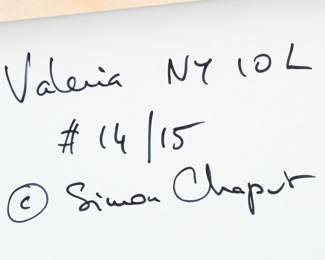 Valeria NY 10 L
# 14/15
© Simon Chaput